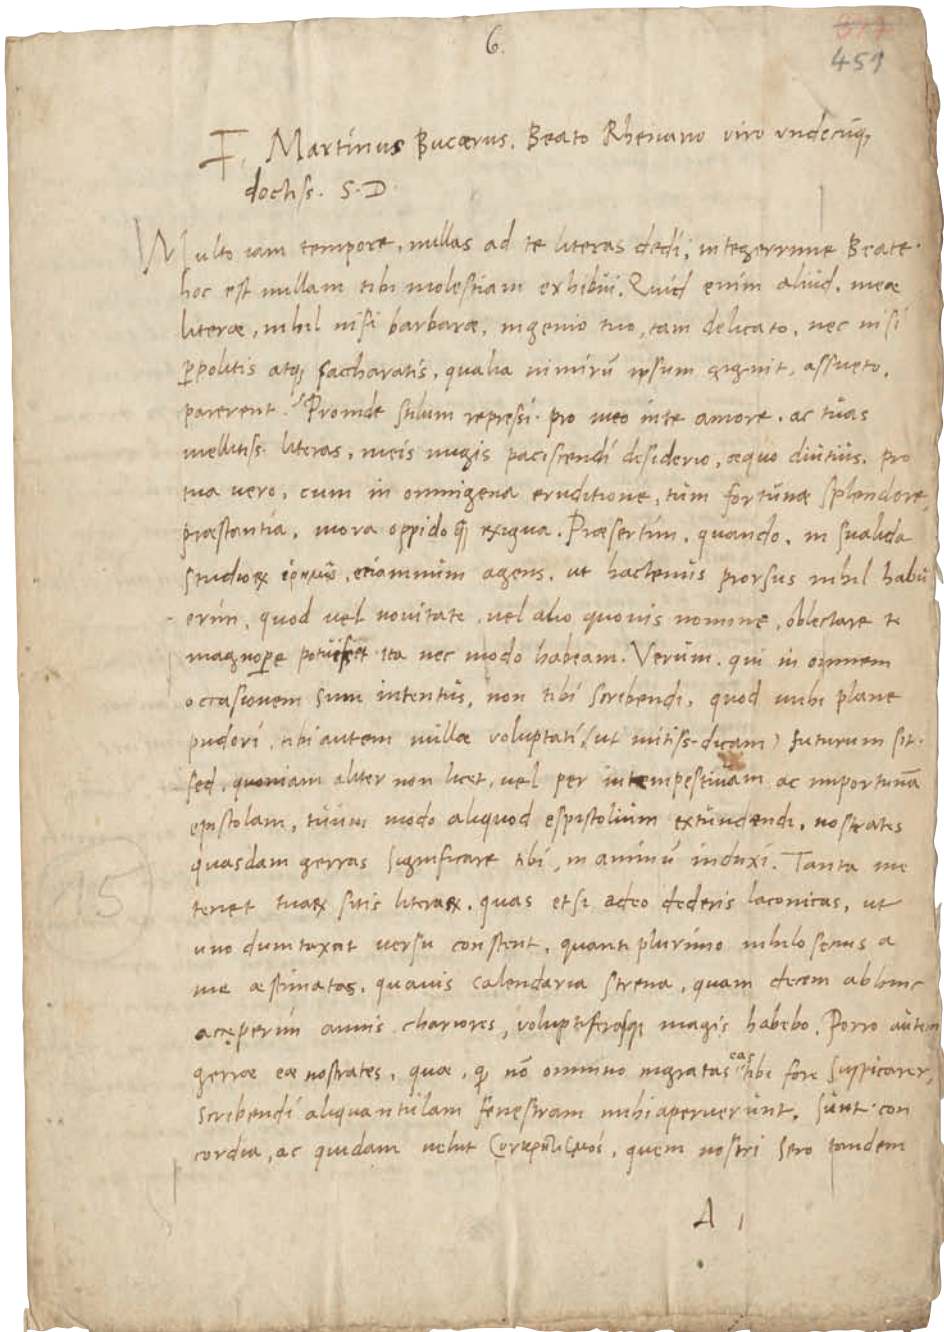 6.
451
F. Martinus Bucærus. Beato Rhenano viro vndecūq;
doctiss. S. D
Multo iam tempore, nullas ad te literas dedi, integerrime Beate.
hoc est nullam tibi molestiam exhibui. Quid enim aliud, meæ
literæ, nihil nisi barbaræ, ingenio tuo, tam delicato, nec nisi
ꝑpolitis atq; saccharatis, qualia nimirū ipsum gignit, assueto,
parerent? Proinde stilum repressi. pro meo in te amore. ac tuas
mellitiss. literas, meis nugis paciscendi desiderio, æquo diutius. pro
tua vero, cum in omnigena eruditione, tum fortunæ splendore,
præstantia, mora oppido q; exigua. Præsertim, quando, in squalida
etiamnum agens, ut hactenus prorsus nihil habu
erim, quod vel novitate, vel alio quovis nomine, oblectare te
magnoꝑe potuisset ita nec modo habeam. Verum, qui in omnem
occasionem sum intentus, non tibi scribendi, quod mihi plane
pudori, tibi autem nullæ voluptati, (ut mitiss. dicam) futurum sit.
sed, quoniam aliter non licet, vel per intempestiuam ac importunā
epistolam, tuum modo aliquod espistolium extundendi, nostratis
quasdam gerras significare tibi, in animū induxi. Tanta me
tenet tuaꝝ sitis literaꝝ. quas etsi adeo dederis laconicas, ut
uno dumtaxat versu constent, quanti plurimo nihilo secius a
me æstimatas, quavis calendaria strena, quam decem abhinc
acceperim annis chariores, voluptiferasq; magis habebo. Porro autem
gerræ eæ nostrates, quæ, q nō omnino ingratas eas tibi fore suspicarer,
scribendi aliquantulam fenestram mihi aperuerunt, sunt. con
cordia, ac quidam velut, quem nostri sero tandem
A 1